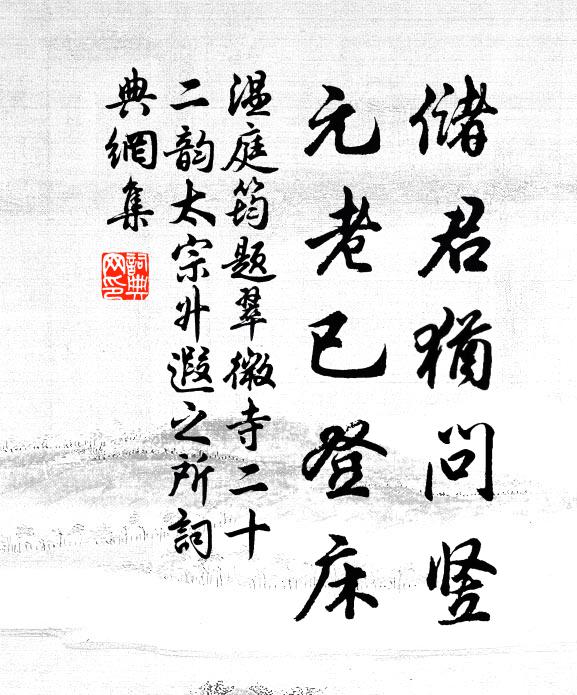 儲君猶問豎
元老已登床
溫庭筠題翠微寺二十
二韵太宗升遐之所詞
典網集
詞典網印